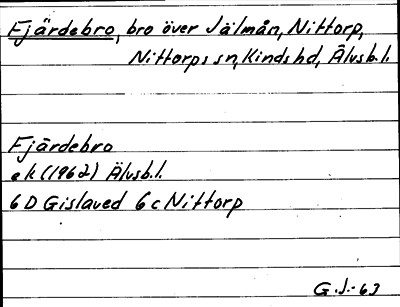 Fjärdebro, bro över Jälmån, Nittorp,
Nittorps sn, Kinds hd, Älvsb. l.
Fjärdebro
ek (1962) Älvsb. l.
6 D Gislaved 6 c Nittorp
G. J. - 63